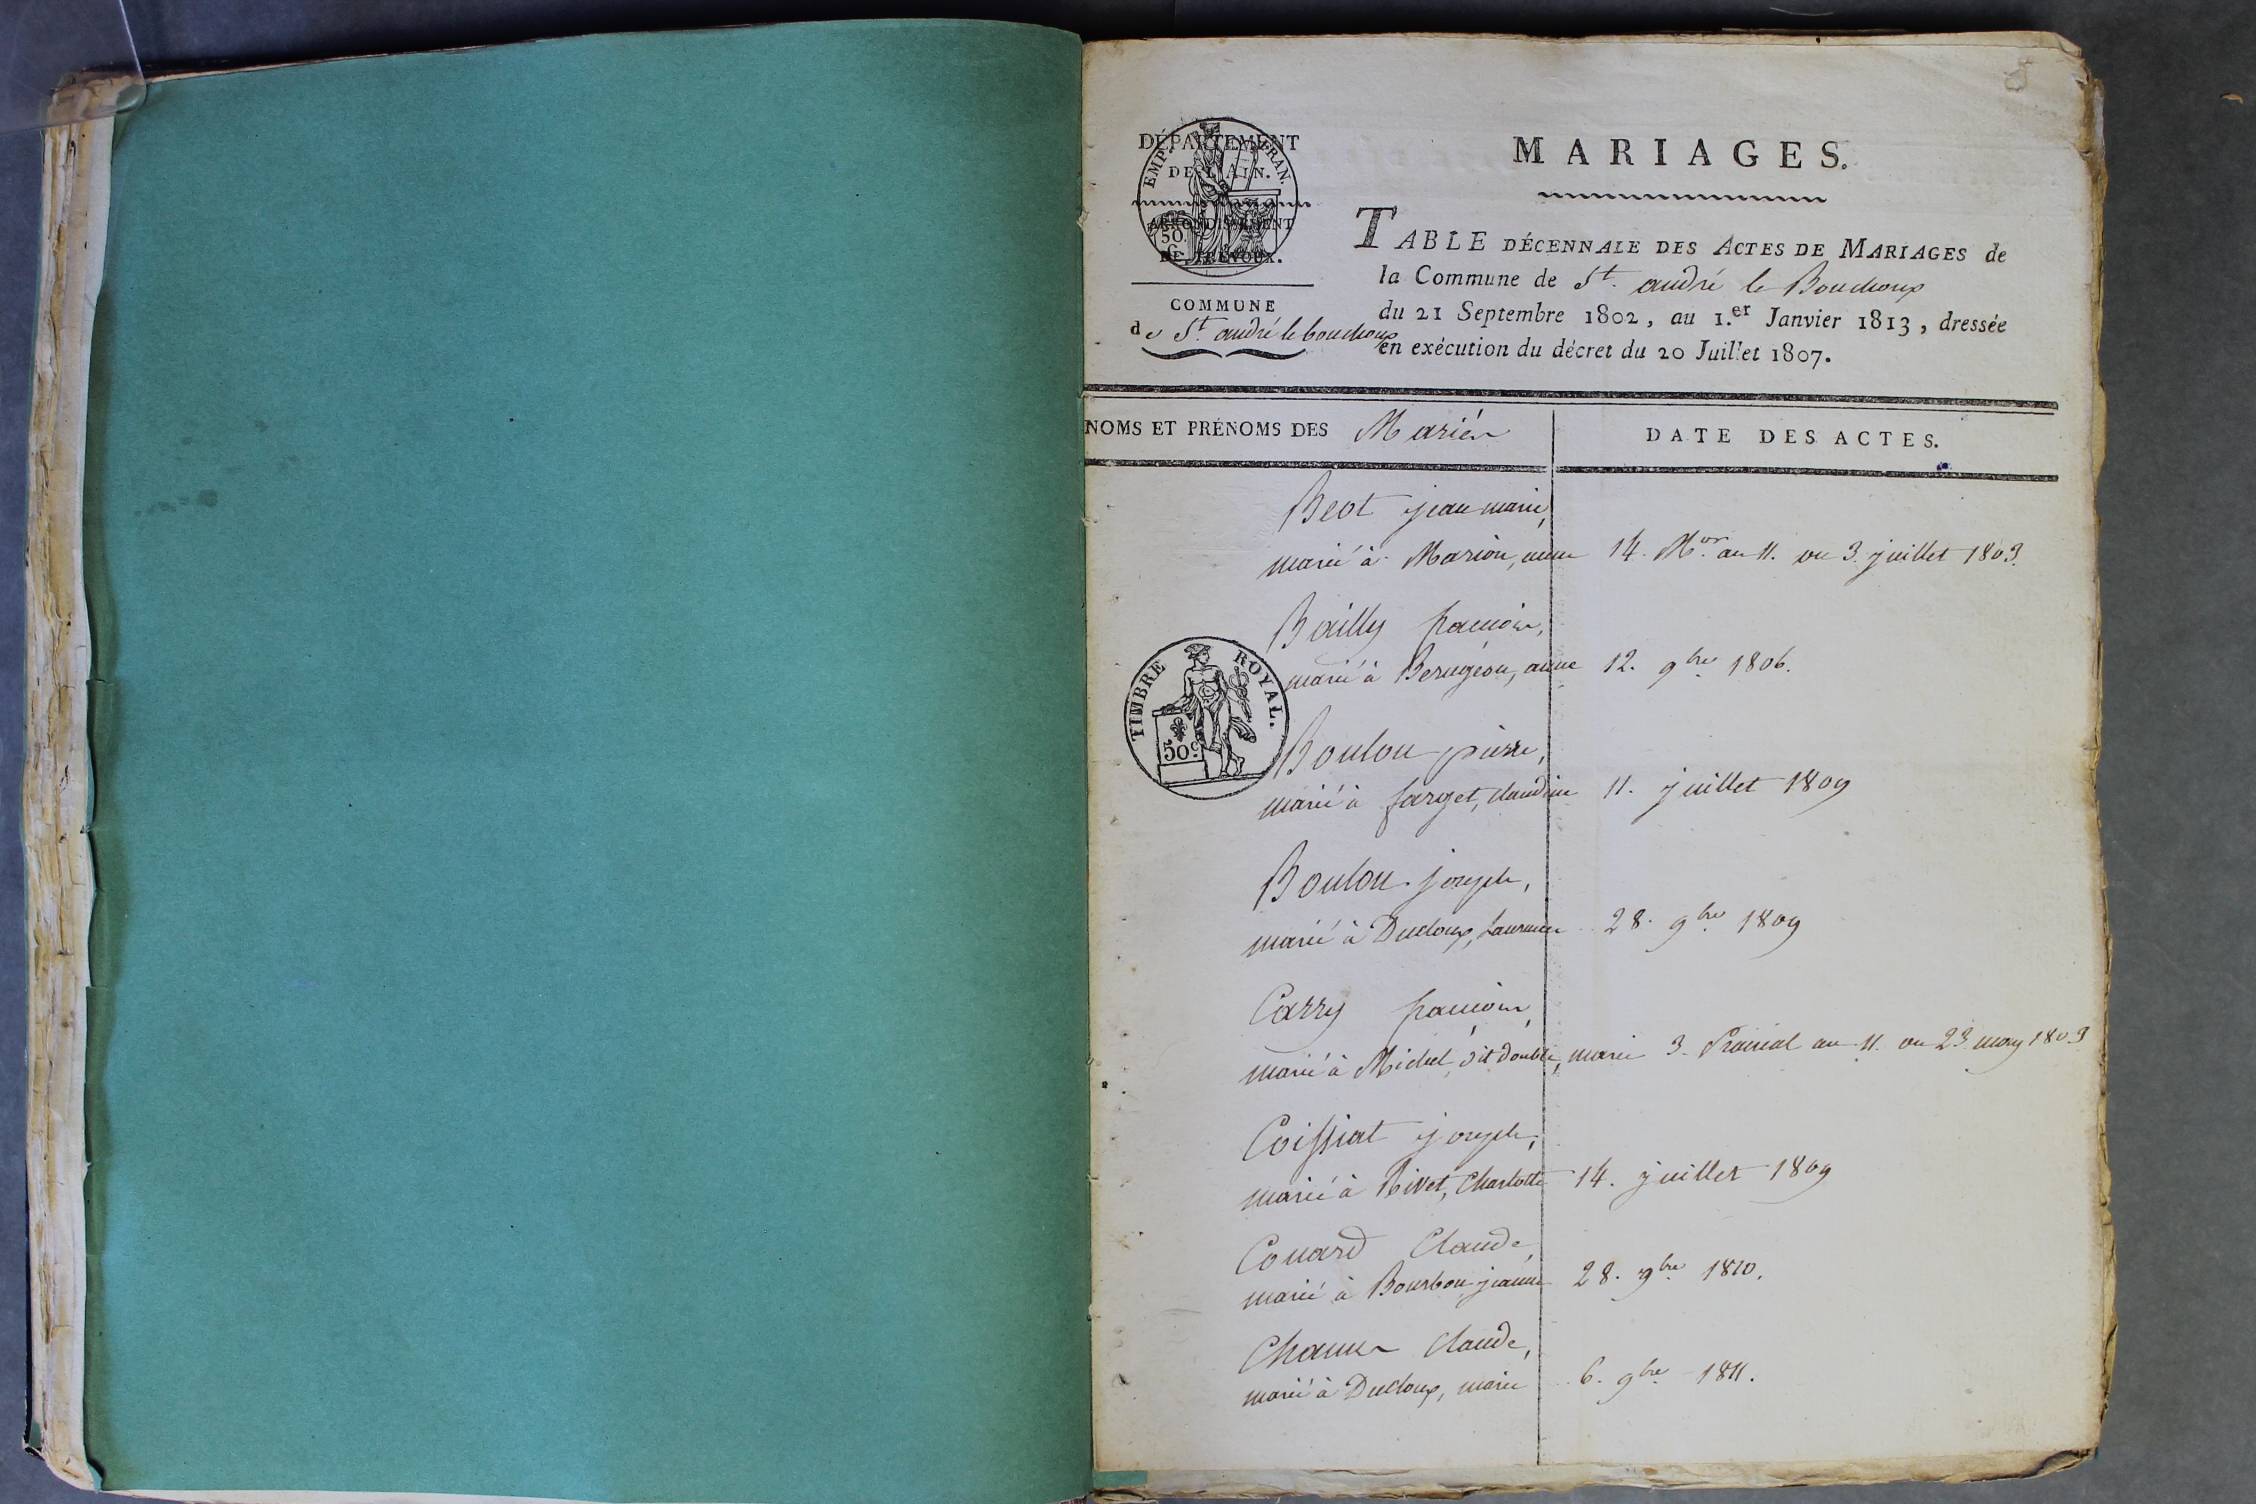 DÉPARTEMENT
DE L'AIN.
EMP. FRAN.
ARRONDISSEMENT
50
C.
DE TRÉVOUX.
COMMUNE
de St. andré le bouchoux
MARIAGES.
TABLE DÉCENNALE DES ACTES DE MARIAGES de
la Commune de St. andré le Bouchoux
du 21 Septembre 1802, au 1.er Janvier 1813, dressée
en exécution du décret du 20 Juillet 1807.
NOMS ET PRÉNOMS DES Mariés
DATE DES ACTES.
Beot jean marie,
marié à Marion, anne 14. Mor. an 11. ou 3. juillet 1803.
Bailly francois,
marié à anne 12. 9bre 1806.
TIMBRE ROYAL.
50c.
Boulon pierre,
marié à farget, claudine 11. juillet 1809
Boulon joseph,
marié à Ducloux, 28. 9bre 1809
Carry francois,
marié à Michel, dit double, marie 3. Prairial an 11. ou 23. may 1803
Coissiat joseph,
marié à Rivet, Charlotte 14. juillet 1809
Couard Claude,
marié à Bourbon jeanne 28. 9bre 1810.
Claude,
marié à Ducloux, marie 6. 9bre 1811.